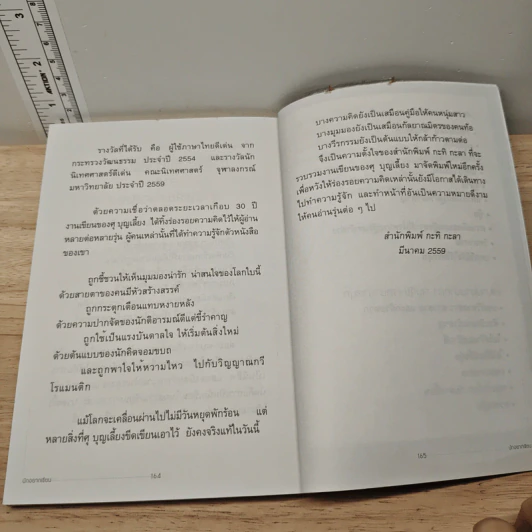 รางวัลที่ได้รับ คือ ผู้ใช้ภาษาไทยดีเด่น จาก
กระทรวงวัฒนธรรม ประจำปี 2554 และรางวัลนัก
นิเทศศาสตร์ดีเด่น คณะนิเทศศาสตร์ จุฬาลงกรณ์
มหาวิทยาลัย ประจำปี 2559
ด้วยความเชื่อว่าตลอดระยะเวลาเกือบ 30 ปี
งานเขียนของศุ บุญเลี้ยง ได้ทิ้งร่องรอยความคิดไว้ให้ผู้อ่าน
หลายต่อหลายรุ่น ผู้คนเหล่านั้นที่ได้ทำความรู้จักตัวหนังสือ
ของเขา
ถูกชี้ชวนให้เห็นมุมมองน่ารัก น่าสนใจของโลกใบนี้
ด้วยสายตาของคนมีหัวสร้างสรรค์
ถูกกระตุกเตือนแทบหงายหลัง
ด้วยความปากจัดของนักตีอารมณ์ดีแต่ขี้รำคาญ
ถูกใช้เป็นแรงบันดาลใจ ให้เริ่มต้นสิ่งใหม่
ด้วยต้นแบบของนักคิดจอมขบถ
และถูกพาใจให้หวามไหว ไปกับวิญญาณกวี
โรแมนติก
แม้โลกจะเคลื่อนผ่านไปไม่มีวันหยุดพักร้อน แต่
หลายสิ่งที่ศุ บุญเลี้ยงขีดเขียนเอาไว้ ยังคงจริงแท้ในวันนี้
164
บางความคิดยังเป็นเสมือนคู่มือให้คนหนุ่มสาว
บางมุมมองยังเป็นเสมือนกัลยาณมิตรของคนท้อ
บางวีรกรรมยังเป็นต้นแบบให้กล้าก้าวตามต่อ
จึงเป็นความตั้งใจของสำนักพิมพ์ กะทิ กะลา ที่จะ
รวบรวมงานเขียนของศุ บุญเลี้ยง มาจัดพิมพ์ใหม่อีกครั้ง
เพื่อหวังให้ร่องรอยความคิดเหล่านั้นยังมีโอกาสได้เดินทาง
ไปทำความรู้จัก และทำหน้าที่อันเป็นความหมายดีงาม
ให้คนอ่านรุ่นต่อ ๆ ไป
สำนักพิมพ์ กะทิ กะลา
มีนาคม 2559
165